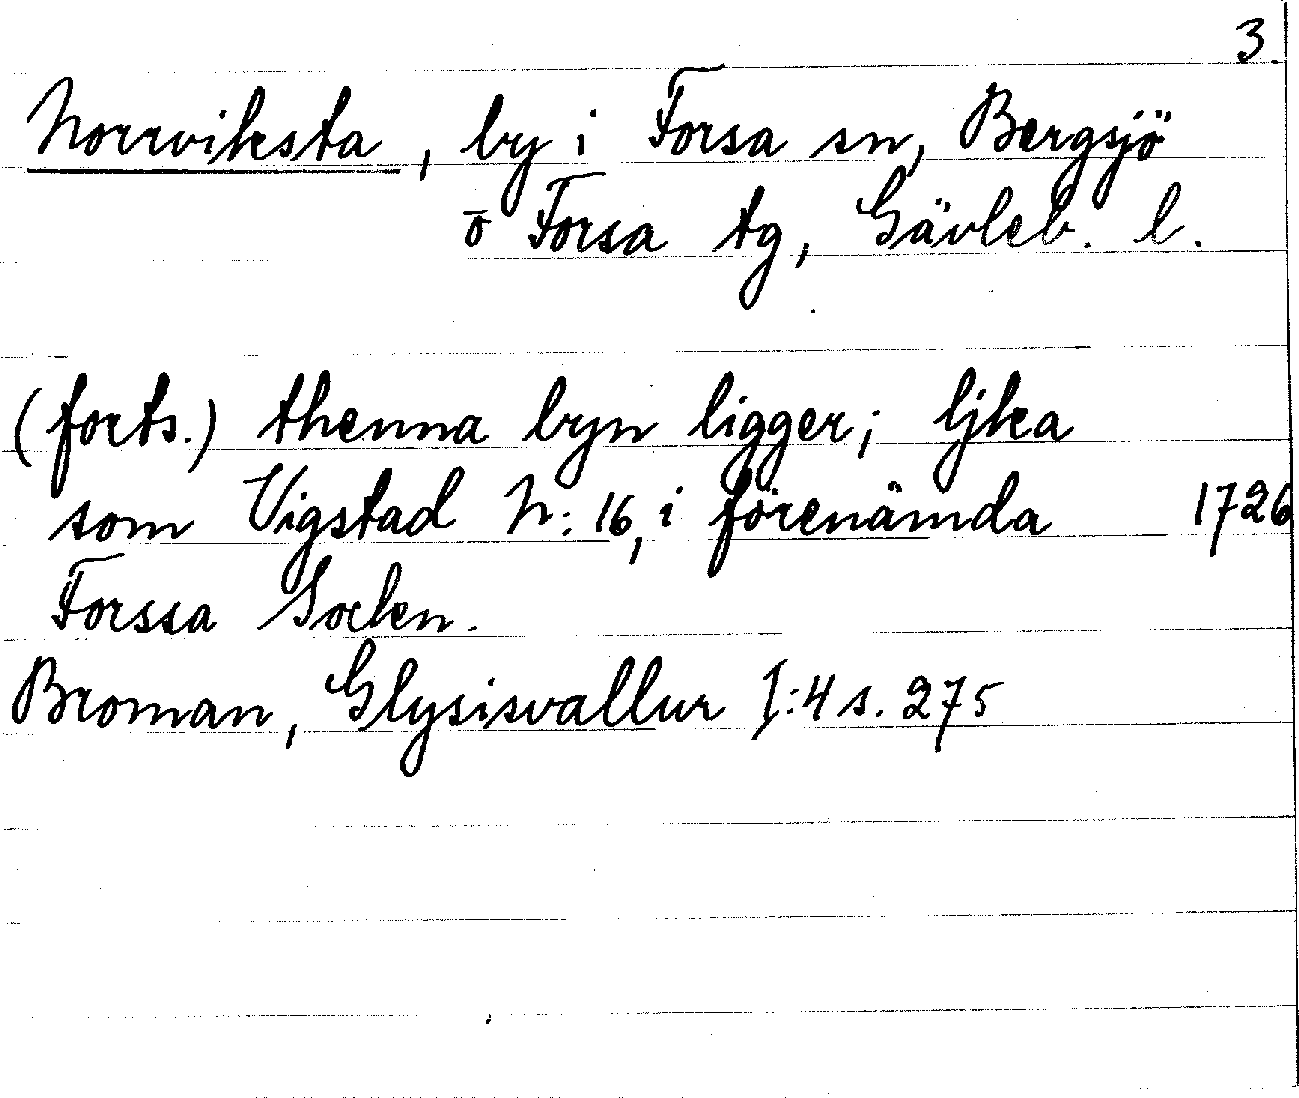 3.
Norrviksta, by i Forsa sn, Bergsjö
o Forsa tg, Gävleb. l.
(forts.) thenna byn ligger; ljka
som Vigstad N: 16, i förenämda 1726
Forssa Soken.
Broman, Glysisvallur I:4 s. 275